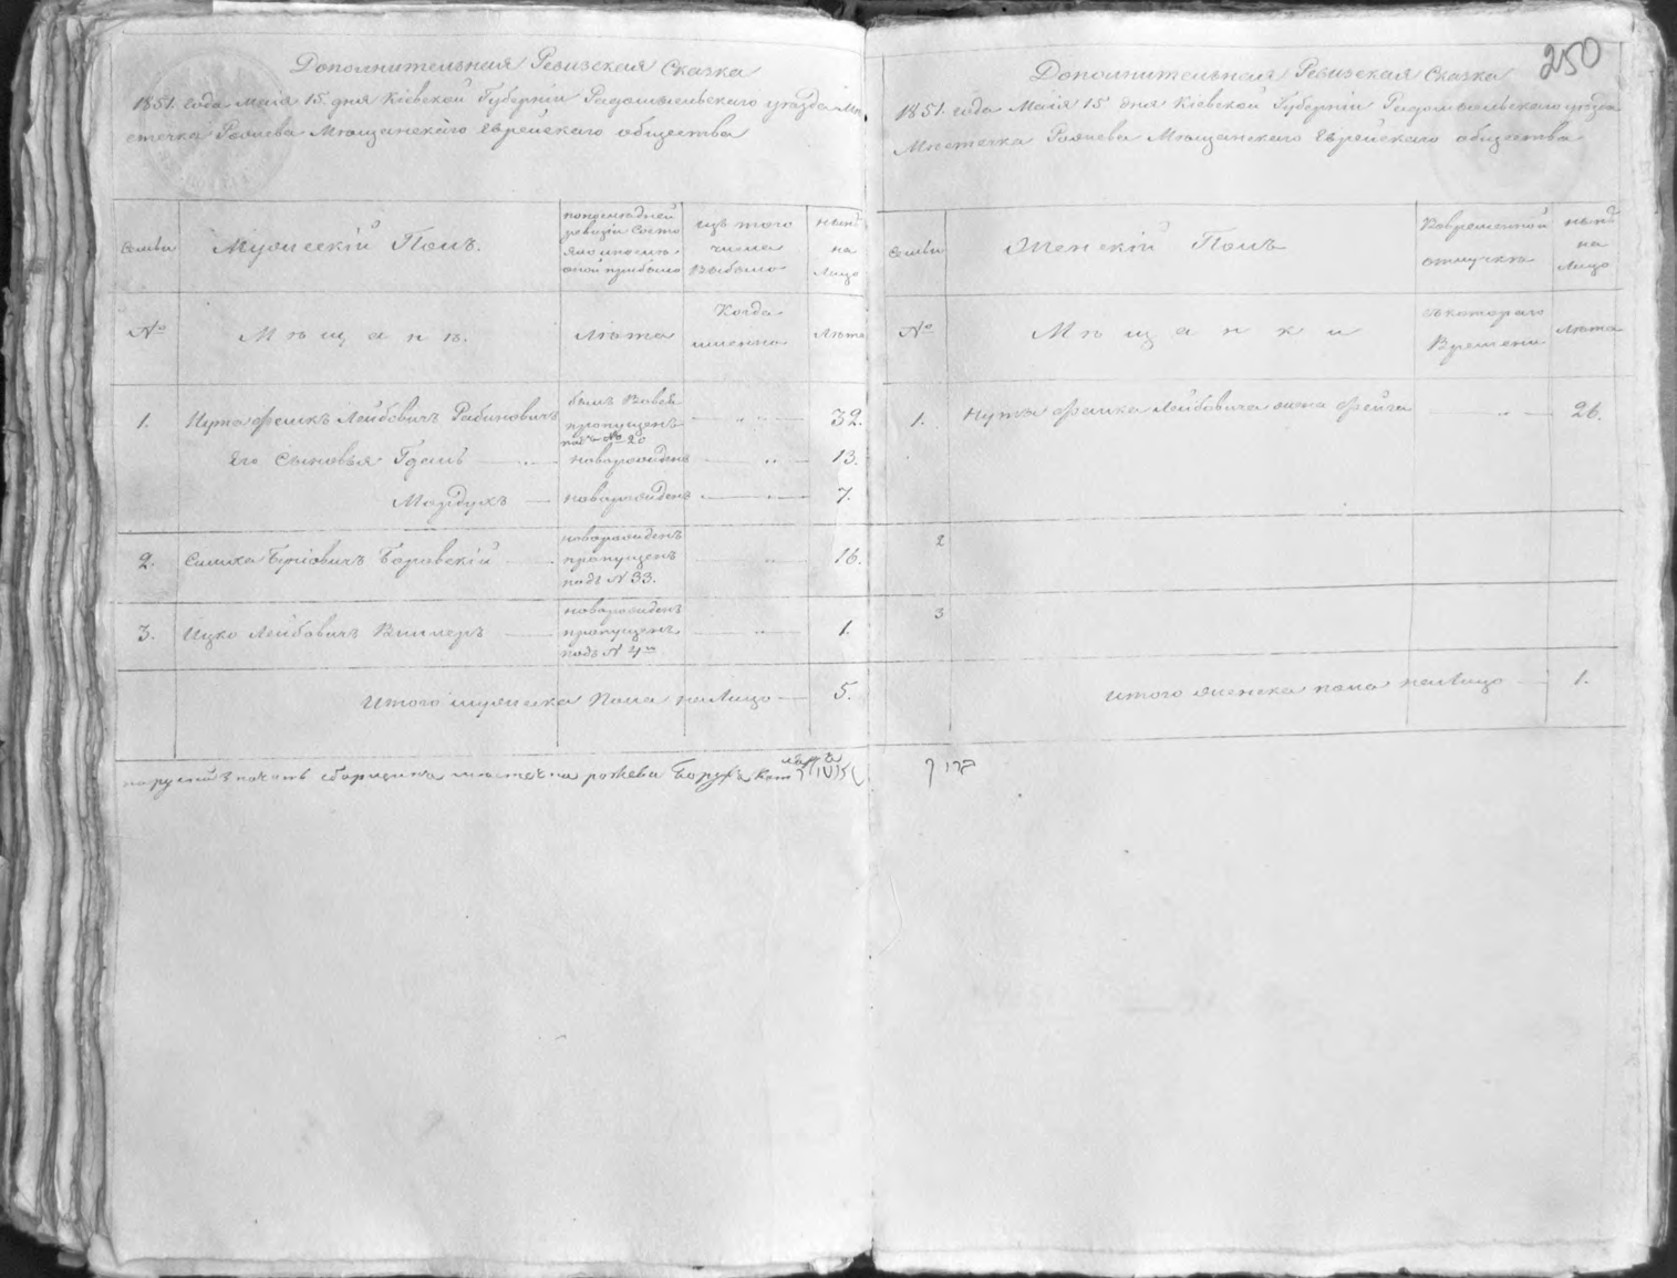 Дополнительная Ревизская Сказка
1851. года Маія 15. дня Кіевской Губерніи Радомысльскаго уѣзда Мѣ
стечка Рожева Мѣщанскаго Еврейскаго общества
Семьи
Мужескій Полъ.
по последней
ревизіи состо
яло и после
оной прибыло
изъ того
числа
Выбыло
нынѣ
на
Лицо
№
М ѣ щ а н ѣ.
Лѣта
Когда
именно
Лѣта
1.
Нута Фешкъ Лейбовичъ Рабиновичъ
былъ Вовсе
пропущенъ
подъ № 20
32.
Его Сыновья Гдаль
новорожденъ
13.
Мордухъ
новорожденъ
7.
2.
Симха Боровскій
новорожденъ
пропущенъ
подъ N 33.
16.
3.
Ицко Лейбовичъ Винлеръ
новорожденъ
пропущенъ
подъ N 4
1.
Итого мужеска Пола налицо
5.
сборщика местечка рожева Борухъ
250
Дополнительная Ревизская Сказка
1851. года Маія 15 дня Кіевской Губерніи Радомысльскаго уѣзда
Мѣстечка Рожева Мѣщанскаго Еврейскаго общества
Семьи
Женскій Полъ
Вовременной
отлучкѣ
нынѣ
на
Лицо
№
М ѣ щ а н к и
съ котораго
Времени
Лѣта
1.
Нуты Фешка Лейбовича жена Фейга
26.
2
3
Итого женска пола налицо
1.